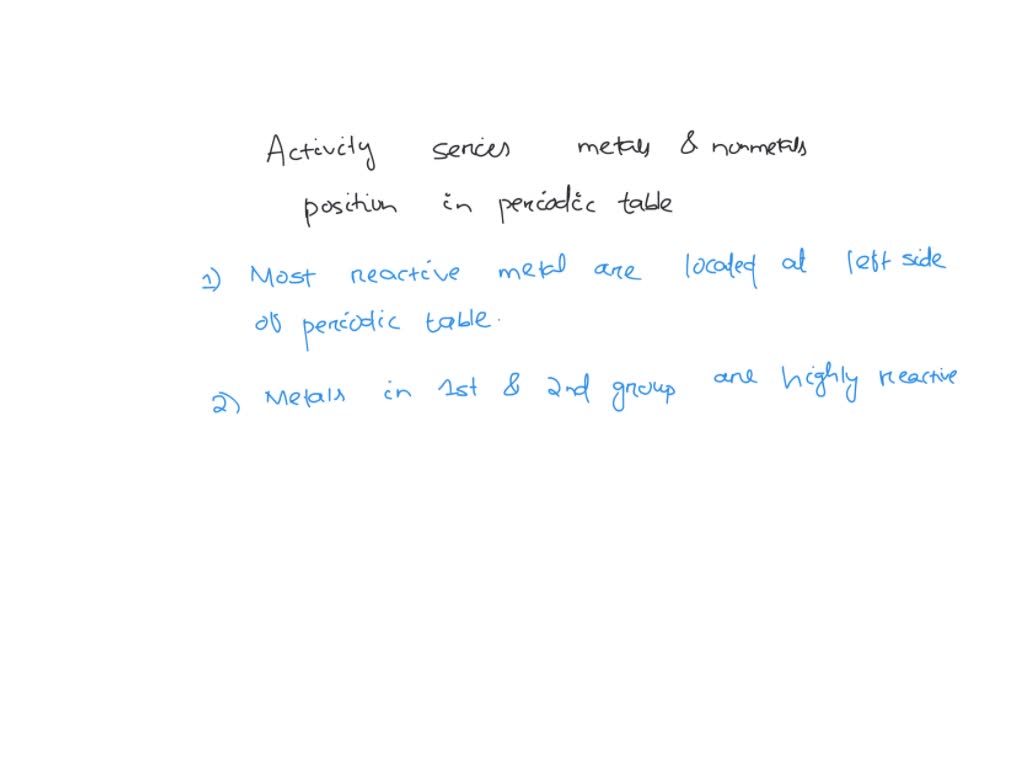 Activity series metals & nonmetals
position in periodic table
1) Most reactive metal are located at left side
of periodic table.
2) Metals in 1st & 2nd group are highly reactive